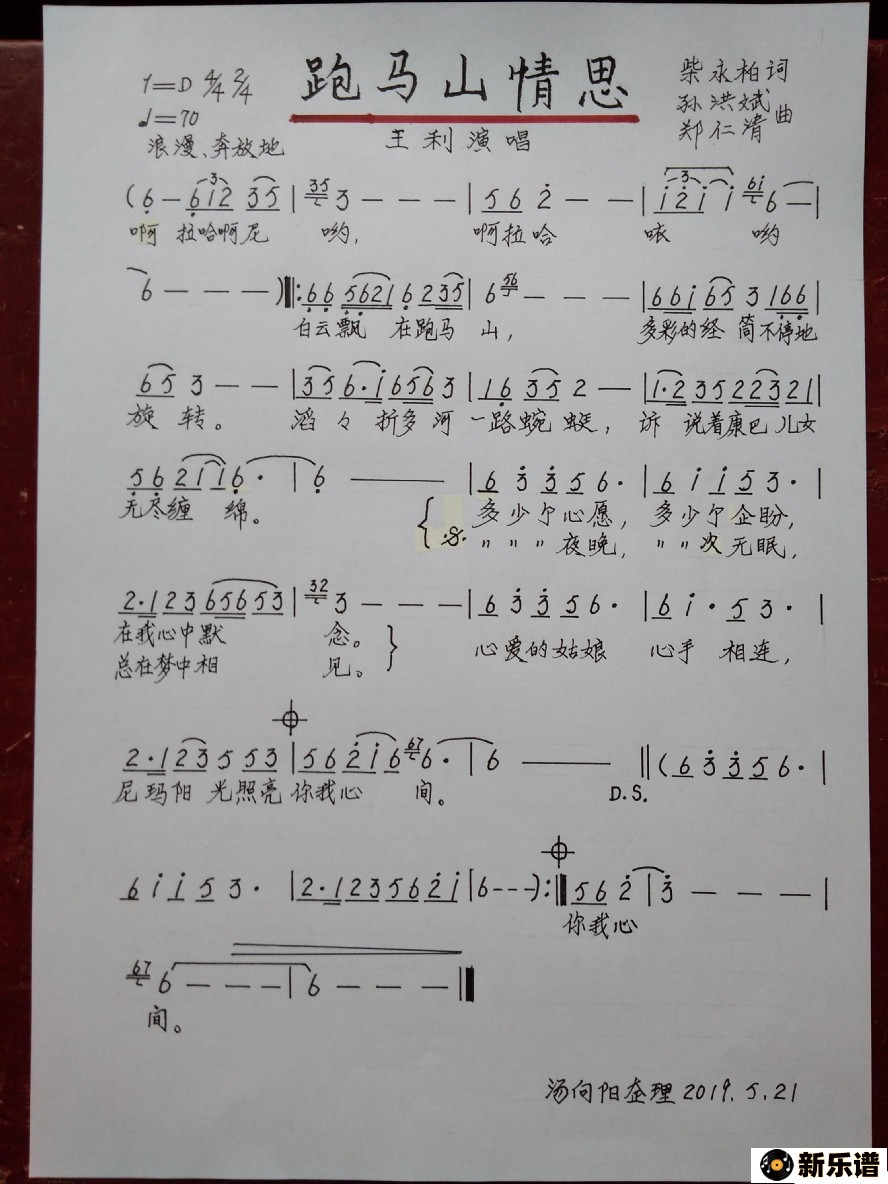 跑马山情思
1=D 4/4 2/4
♩=70
浪漫、奔放地
王利演唱
柴永柏词
孙洪斌
郑仁清 曲
(6 — 6 1 2 3 5 | 35 3 — — — | 5 6 2 — — | i 2 i i 6i 6 — |
啊 拉哈啊尼 哟, 啊拉哈 咳 哟
6 — — — ) ‖: 6 6 5 6 2 1 6 2 3 5 | 6 56 — — — | 6 6 i 6 5 3 1 6 6 |
白云飘 在跑马 山, 多彩的经 筒不停地
6 5 3 — — | 3 5 6 · i 6 5 6 3 | 1 6 3 5 2 — | 1 · 2 3 5 2 2 3 2 1 |
旋 转。 滔々 折多河 一路蜿蜒, 诉 说着康巴儿女
5 6 2 1 1 6 · | 6 — | 6 3 3 5 6 · | 6 i i 5 3 · |
无尽缠 绵。 多少个心愿, 多少个企盼,
𝄋 〃〃〃夜晚, 〃〃次无眠,
2 · 1 2 3 6 5 6 5 3 | 32 3 — — — | 6 3 3 5 6 · | 6 i · 5 3 · |
在我心中默 念。 心爱的姑娘 心手 相连,
总在梦中相 见。
2 · 1 2 3 5 5 3 | 5 6 2 i 6 67 6 · | 6 — ‖ (6 3 3 5 6 · |
尼玛阳 光照亮 你我心 间。 D.S.
6 i i 5 3 · | 2 · 1 2 3 5 6 2 i | 6 - - - ) :‖ 5 6 2 | 3 — — — |
你我心
67 6 — — — | 6 — — — ‖
间。
汤向阳整理 2019.5.21
新乐谱